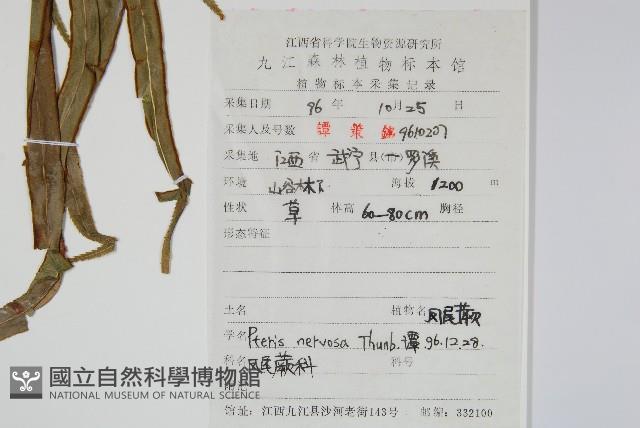 江西省科学院生物资源研究所
九江森林植物标本馆
植物标本采集记录
采集日期 96 年 10 月 25 日
采集人及号数 譚策銘 9610207
采集地 江西 省 武宁 县(市) 罗溪
环境 山谷林下 海拔 1200 m
性状 草 体高 60—80cm 胸径
形态特征
土名 植物名 凤尾蕨
学名 Pteris nervosa Thunb. 譚. 96.12.28.
科名 凤尾蕨科 科号
國立自然科學博物館
NATIONAL MUSEUM OF NATURAL SCIENCE
馆址:江西九江县沙河老街143号 邮编:332100